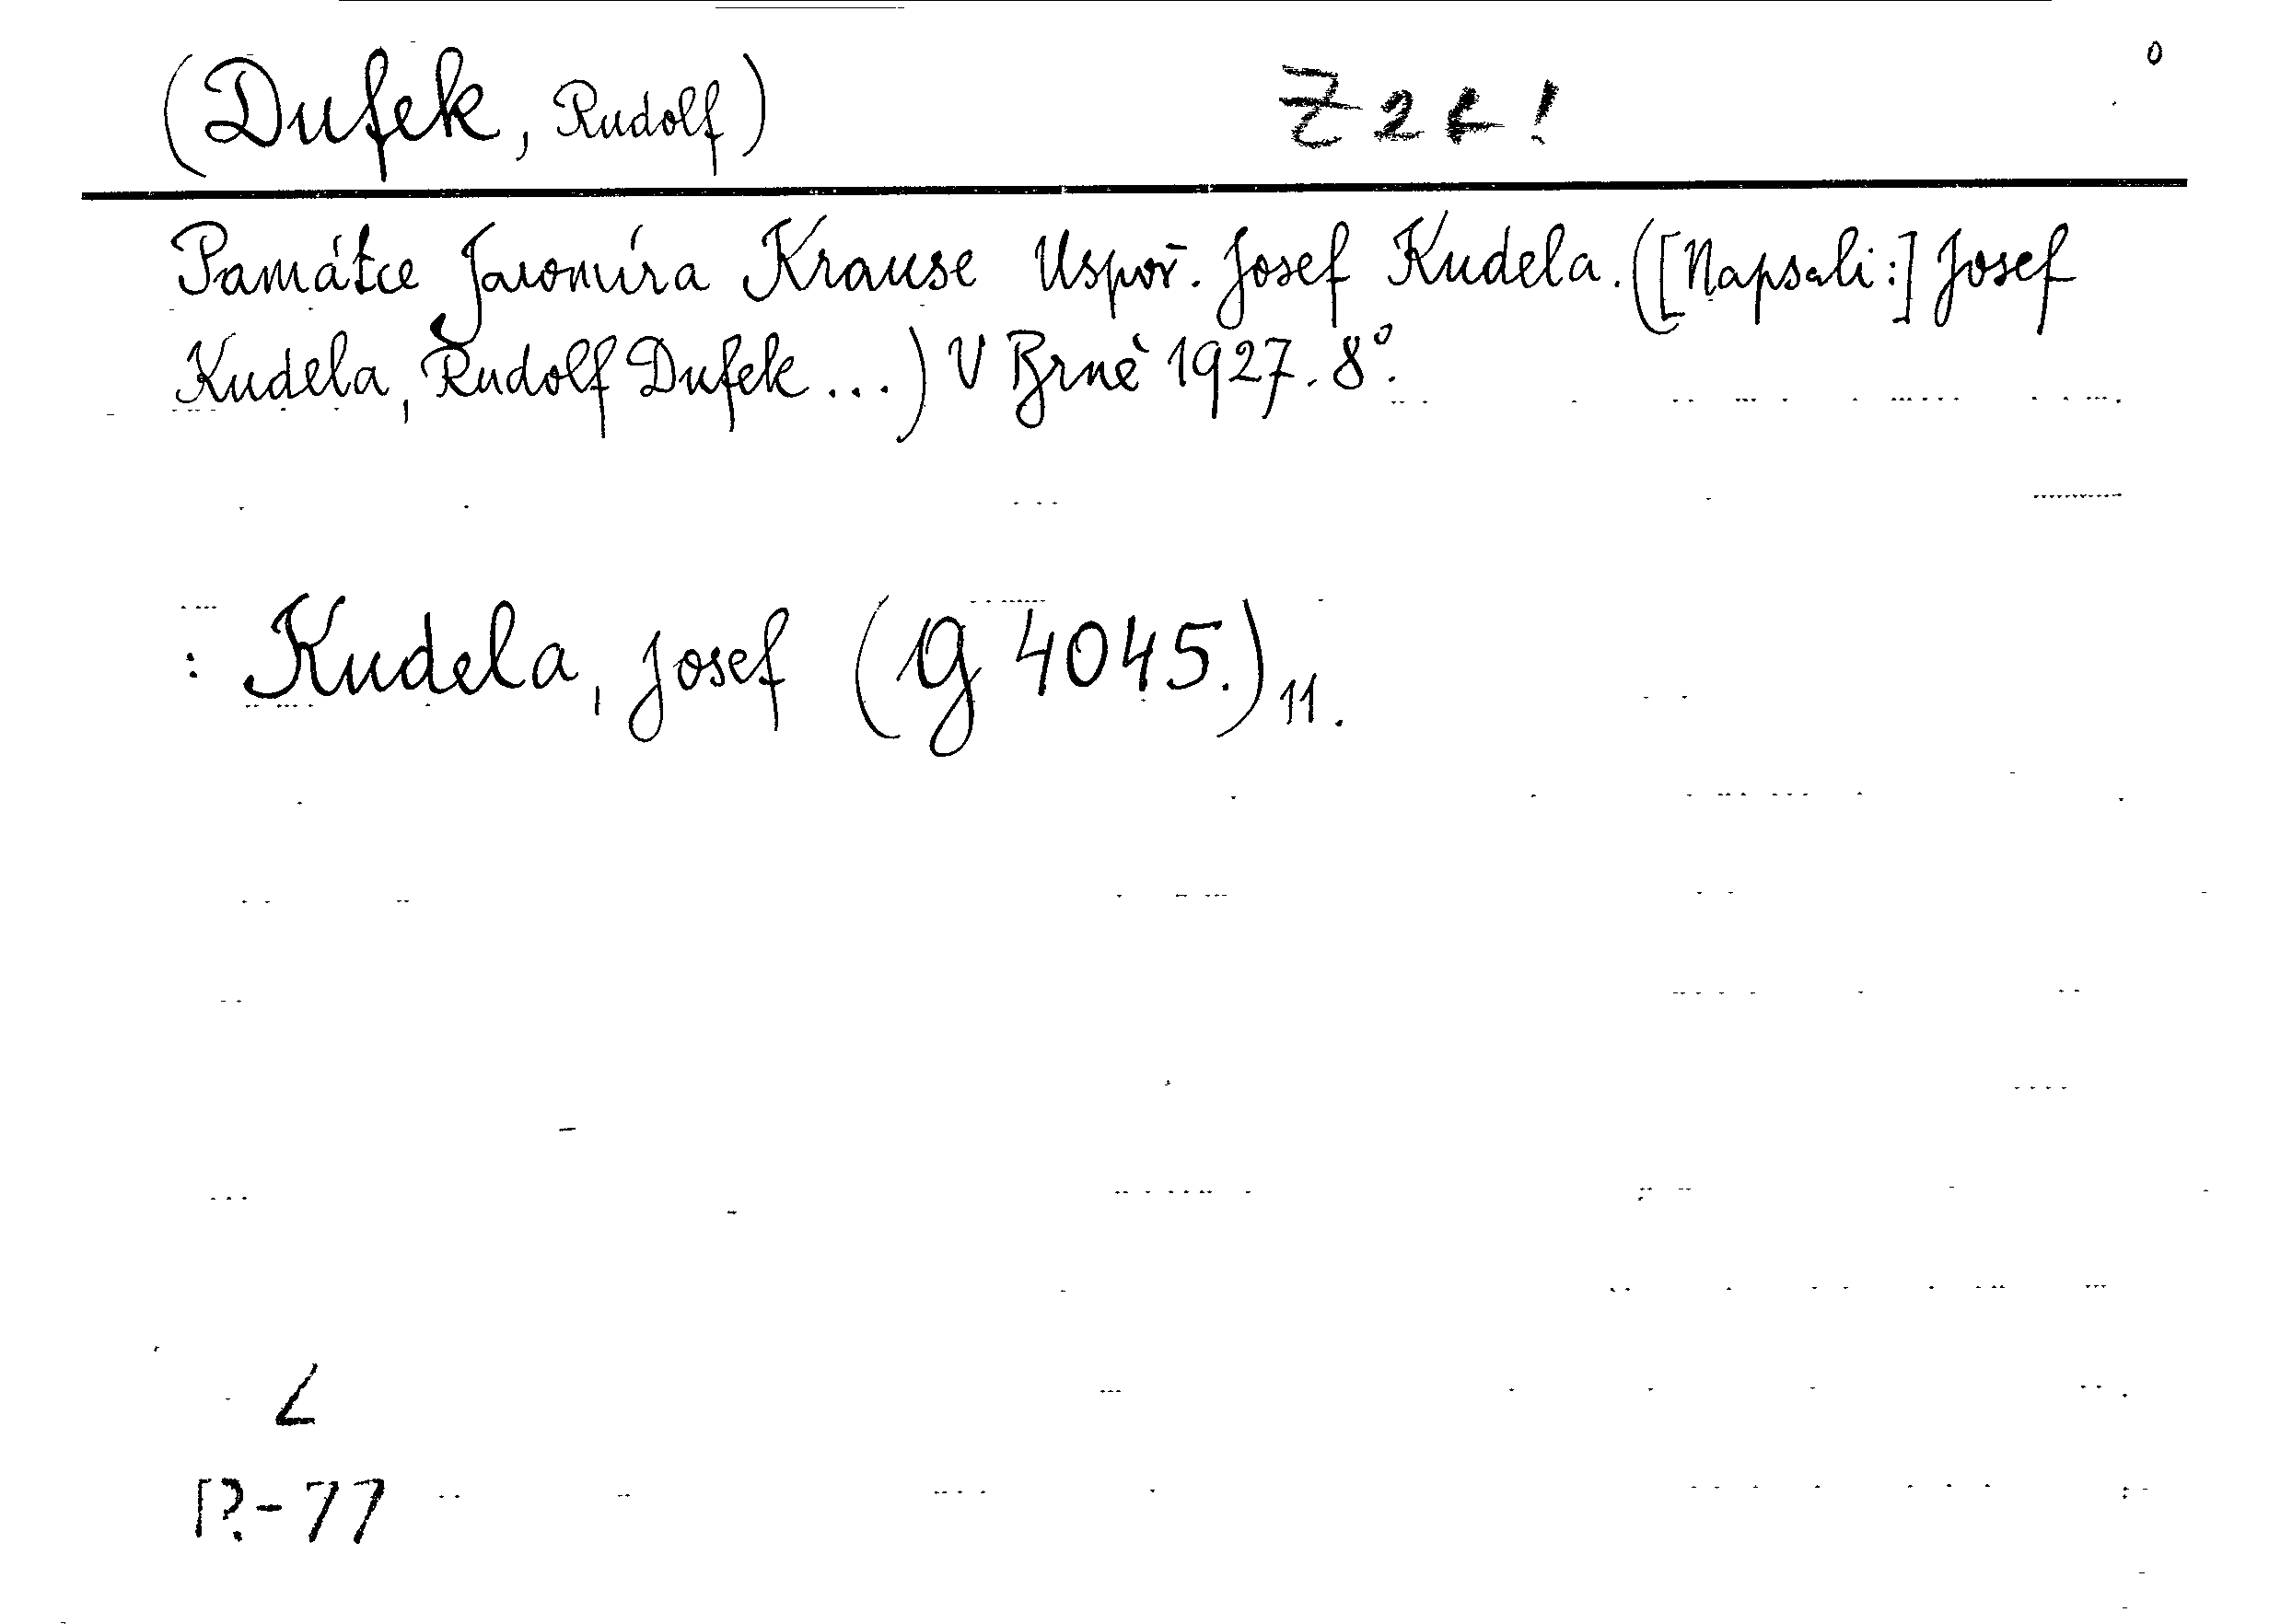 (Dufek, Rudolf)
Památce Jaromíra Krause Uspoř. Josef Kudela. ([Napsali:] Josef
Kudela, Rudolf Dufek...) V Brně 1927. 8°.
: Kudela, Josef (G 4045.) 11.